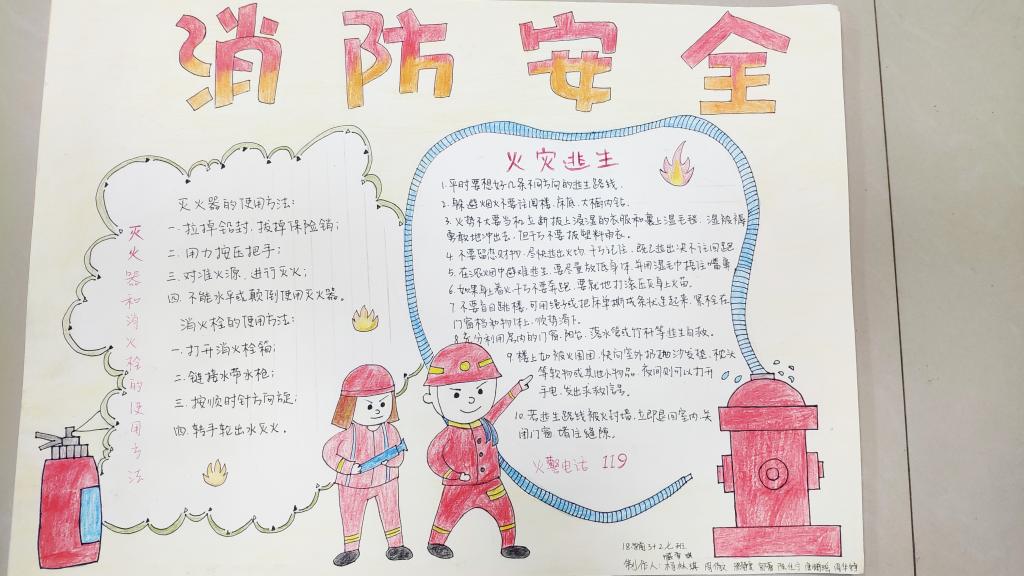 消防安全
灭火器和消火栓的使用方法
灭火器的使用方法:
一.拉掉铅封,拔掉保险销;
二.用力按压把手;
三.对准火源,进行灭火;
四.不能水平或颠倒使用灭火器。
消火栓的使用方法:
一.打开消火栓箱;
二.链接水带水枪;
三.按顺时针方向旋;
四.转手轮出水灭火。
火灾逃生
1.平时要想好几条不同方向的逃生路线.
2.躲避烟火不要往阁楼.床底.大橱内钻.
3.火势不大要当机立断披上浸湿的衣服和裹上湿毛毯.湿被褥
勇敢地冲出去,但千万不要披塑料雨衣.
4.不要留恋财物,尽快逃出火场.千万记住,既已逃出决不往回跑
5.在浓烟中避难逃生,要尽量放低身体,并用湿毛巾捂住嘴鼻
6.如果身上着火千万不要奔跑,要就地打滚压灭身上火苗.
7.不要盲目跳楼,可用绳子或把床单撕成条状连起来,紧栓在
门窗档和物体上.顺势滑下.
8.充分利用房内的门窗.阳台.落水管或竹杆等逃生自救.
9.楼上如被火围困,快向室外扔抛沙发垫,枕头
等软物或其他小物品.夜间则可以打开
手电,发出求救信号.
10.若逃生路线被火封堵,立即退回室内,关
闭门窗,堵住缝隙.
火警电话 119
3+2七班
制作人: